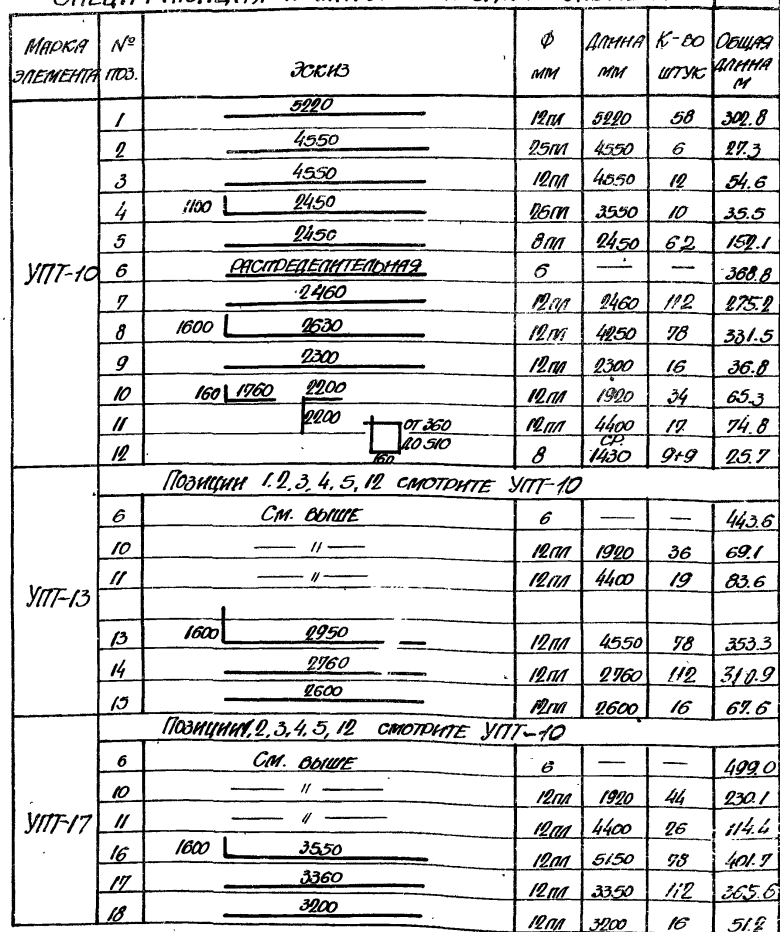 МАРКА ЭЛЕМЕНТА № ПОЗ. ЭСКИЗ Ф ММ ДЛИНА ММ К-ВО ШТУК ОБЩАЯ ДЛИНА М
УПТ-10
1 5220 12ПЛ 5220 58 302.8
2 4550 25ПЛ 4550 6 27.3
3 4550 12ПЛ 4550 12 54.6
4 1100 2450 26ПЛ 3550 10 35.5
5 2450 8ПЛ 2450 62 152.1
6 РАСПРЕДЕЛИТЕЛЬНАЯ 6 — — 368.8
7 2460 12ПЛ 2460 112 275.2
8 1600 2630 12ПЛ 4250 78 331.5
9 2300 12ПЛ 2300 16 36.8
10 160 1760 2200 12ПЛ 1920 34 65.3
11 2200 ОТ 360 12ПЛ 4400 17 74.8
12 ДО 510 160 8 СР. 1430 9+9 25.7
ПОЗИЦИИ 1.2,3,4,5,12 СМОТРИТЕ УПТ-10
УПТ-13
6 СМ. ВЫШЕ 6 — — 443.6
10 — 〃 — 12ПЛ 1920 36 69.1
11 — 〃 — 12ПЛ 4400 19 83.6
13 1600 2950 12ПЛ 4550 78 353.3
14 2760 12ПЛ 2760 112
15 2600 12ПЛ 2600 16 67.6
ПОЗИЦИИ 1,2,3,4,5,12 СМОТРИТЕ УПТ-10
УПТ-17
6 СМ. ВЫШЕ 6 — — 499.0
10 — 〃 — 12ПЛ 1920 44 230.1
11 — 〃 — 12ПЛ 4400 26 114.4
16 1600 3550 12ПЛ 5150 78 401.7
17 3360 12ПЛ 3350 112 365.6
18 3200 12ПЛ 3200 16 51.2